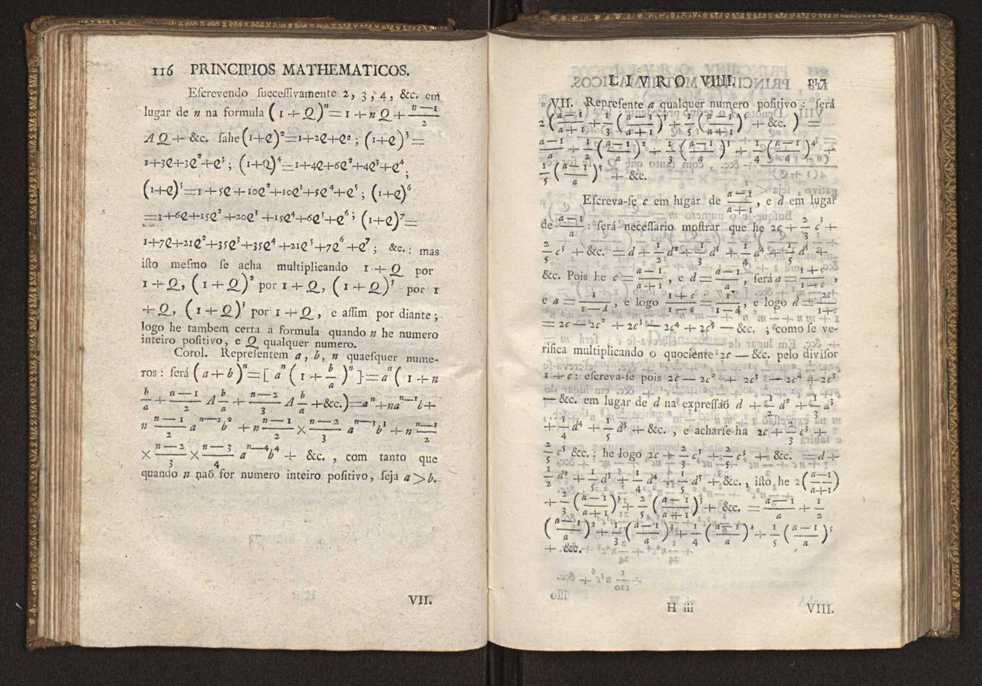 116 PRINCIPIOS MATHEMATICOS.
Escrevendo successivamente 2, 3, 4, &c. em
lugar de n na formula (1+Q)ⁿ = 1+nQ+ (n−1)/2
AQ + &c. sahe (1+Q)² = 1+2Q+Q² ; (1+Q)³ =
1+3Q+3Q²+Q³ ; (1+Q)⁴ = 1+4Q+6Q²+4Q³+Q⁴ ;
(1+Q)⁵ = 1+5Q+10Q²+10Q³+5Q⁴+Q⁵ ; (1+Q)⁶
= 1+6Q+15Q²+20Q³+15Q⁴+6Q⁵+Q⁶ ; (1+Q)⁷ =
1+7Q+21Q²+35Q³+35Q⁴+21Q⁵+7Q⁶+Q⁷ ; &c. : mas
isto mesmo se acha multiplicando 1+Q por
1+Q, (1+Q)² por 1+Q, (1+Q)³ por 1
+Q, (1+Q)⁴ por 1+Q, e assim por diante ;
logo he tambem certa a formula quando n he numero
inteiro positivo, e Q qualquer numero.
Corol. Representem a, b, n quaesquer nume-
ros : será (a+b)ⁿ = [aⁿ(1+b/a)ⁿ] = aⁿ(1+n
b/a + (n−1)/2 A b/a + (n−2)/3 A b/a + &c.) = aⁿ + naⁿ⁻¹b +
n (n−1)/2 aⁿ⁻²b² + n (n−1)/2 × (n−2)/3 aⁿ⁻³b³ + n (n−1)/2
× (n−2)/3 × (n−3)/4 aⁿ⁻⁴b⁴ + &c. , com tanto que
quando n naõ for numero inteiro positivo, seja a > b.
VII.
LIVRO VIIII.
VII. Represente a qualquer numero positivo : será
2((a−1)/(a+1) + 1/3 ((a−1)/(a+1))³ + 1/5 ((a−1)/(a+1))⁵ + &c.) =
(a−1)/a + 1/2 ((a−1)/a)² + 1/3 ((a−1)/a)³ + 1/4 ((a−1)/a)⁴ +
1/5 ((a−1)/a)⁵ + &c.
Escreva-se c em lugar de (a−1)/(a+1), e d em lugar
de (a−1)/a : será necessario mostrar que he 2c + 2/3 c³ +
2/5 c⁵ + &c. = d + 1/2 d² + 1/3 d³ + 1/4 d⁴ + 1/5 d⁵ +
&c. Pois he c = (a−1)/(a+1), e d = (a−1)/a, será a = (1+c)/(1−c),
e a = 1/(1−d), e logo (1+c)/(1−c) = 1/(1−d), e logo d = 2c/(1+c)
= 2c − 2c² + 2c³ − 2c⁴ + 2c⁵ − &c. ; como se ve-
rifica multiplicando o quociente 2c − &c. pelo divisor
1+c : escreva-se pois 2c − 2c² + 2c³ − 2c⁴ + 2c⁵
− &c. em lugar de d na expressaõ d + 1/2 d² + 1/3 d³
+ 1/4 d⁴ + 1/5 d⁵ + &c. , e achar-se-ha 2c + 2/3 c³ +
2/5 c⁵ &c. : he logo 2c + 2/3 c³ + 2/5 c⁵ + &c. = d +
1/2 d² + 1/3 d³ + 1/4 d⁴ + 1/5 d⁵ + &c. , isto he 2((a−1)/(a+1))
+ 2/3 ((a−1)/(a+1))³ + 2/5 ((a−1)/(a+1))⁵ + &c. = (a−1)/a + 1/2
((a−1)/a)² + 1/3 ((a−1)/a)³ + 1/4 ((a−1)/a)⁴ + 1/5 ((a−1)/a)⁵
+ &c.
H iii
VIII.